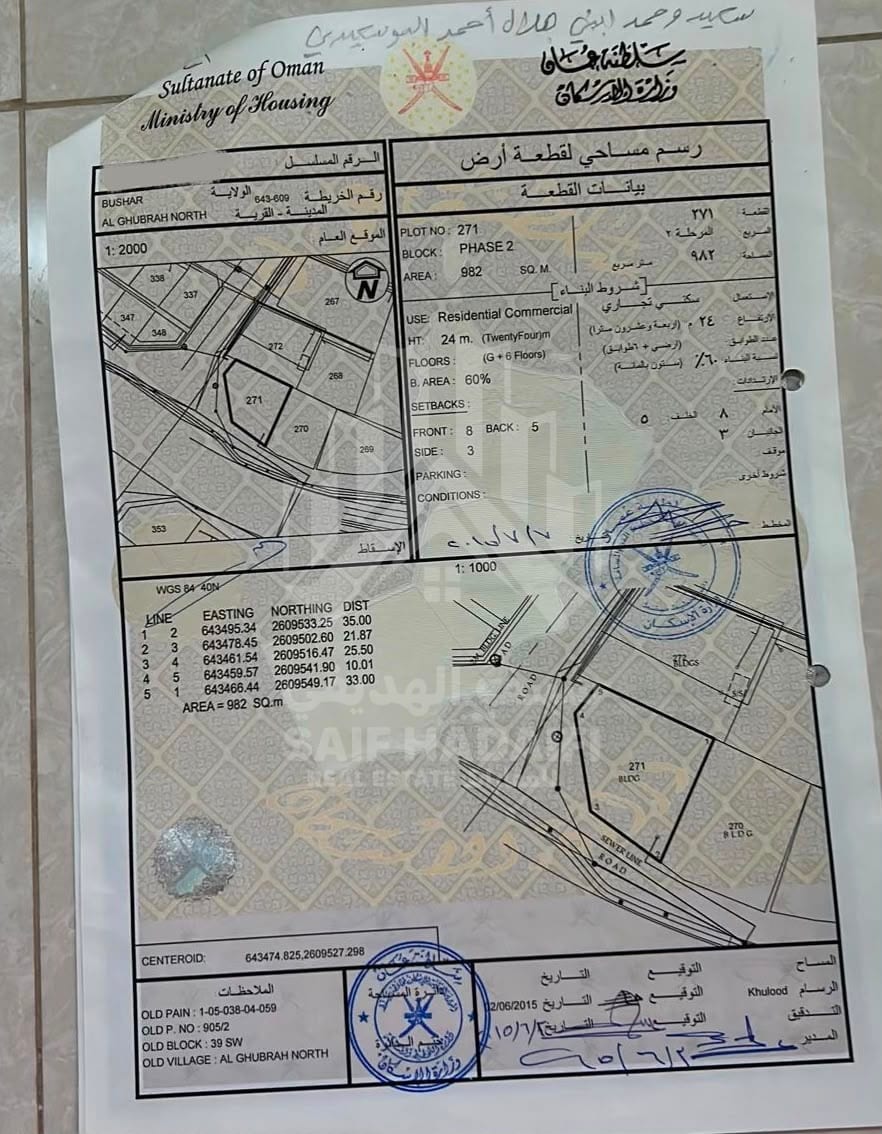 سعيد وحمد ابني هلال أحمد البوسعيدي
Sultanate of Oman
Ministry of Housing
سلطنة عمان
وزارة الإسكان
الرقم المسلسل
رسم مساحي لقطعة أرض
BUSHAR
الولاية
643-609
رقم الخريطة
AL GHUBRAH NORTH
المدينة - القرية
بيانات القطعة
1: 2000
الموقع العام
PLOT NO : 271
٢٧١
القطعة
BLOCK : PHASE 2
المرحلة ٢
المربع
AREA : 982 SQ. M.
متر مربع
٩٨٢
المساحة
شروط البناء
USE: Residential Commercial
سكني تجاري
الاستعمال
HT: 24 m. (TwentyFour)m
٢٤ م (اربعة وعشرون مترا)
الارتفاع
FLOORS : (G + 6 Floors)
(أرضي + ٦طوابق)
عدد الطوابق
B. AREA : 60%
٦٠٪ (ستون بالمائة)
نسبة البناء
SETBACKS :
الارتدادات
FRONT : 8 BACK : 5
٥
الخلف
٨
الأمام
SIDE : 3
٣
الجانبان
PARKING :
موقف
CONDITIONS :
شروط أخرى
المخطط
338
337
347
348
267
N
272
268
271
270
269
353
الإسقاط
1: 1000
WGS 84 40N
LINE EASTING NORTHING DIST
1 2 643495.34 2609533.25 35.00
2 3 643478.45 2609502.60 21.87
3 4 643461.54 2609516.47 25.50
4 5 643459.57 2609541.90 10.01
5 1 643466.44 2609549.17 33.00
AREA = 982 SQ.m
BLDG LINE
ROAD
ROAD
272
BLDGS
S/S
5
4
1
271
BLDG
3
2
270
BLDG
SEWER LINE
ROAD
سيف الهديفي
SAIF HADAIFI
REAL ESTATE
CENTEROID: 643474.825,2609527.298
الملاحظات
OLD PAIN : 1-05-038-04-059
OLD P. NO : 905/2
OLD BLOCK : 39 SW
OLD VILLAGE : AL GHUBRAH NORTH
وزارة الإسكان
التاريخ
التوقيع
المساح
02/06/2015
التاريخ
التوقيع
Khulood
الرسام
التاريخ
التوقيع
التدقيق
المدير